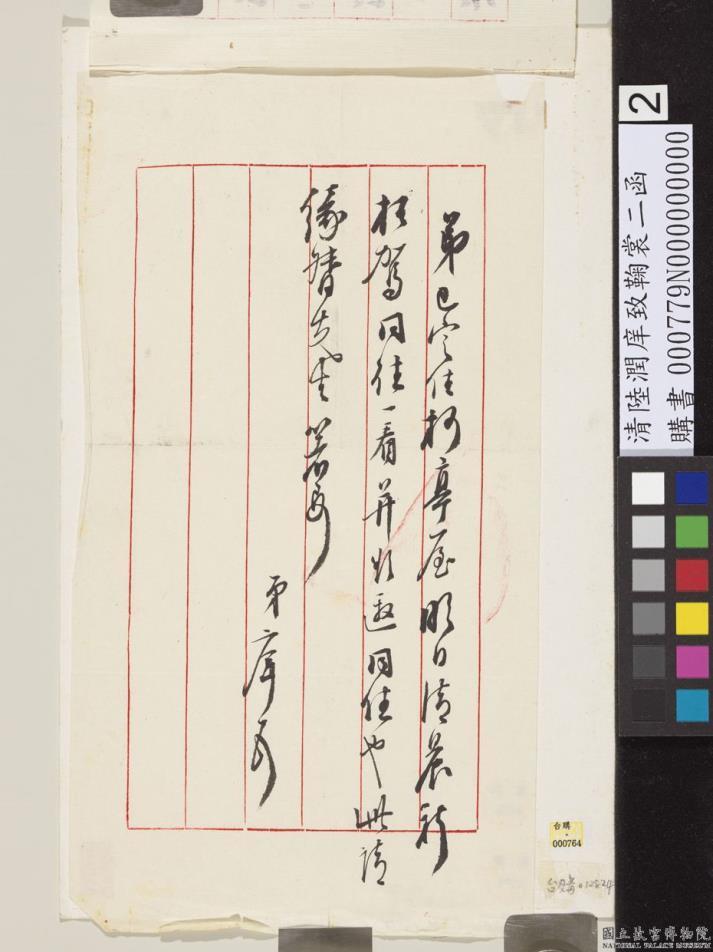 弟已定住柯亭屋明日清晨祈
枉駕同往一看并擬邀同住也此請
緣督先生 箸安
弟庠頓
2
清陸潤庠致鞠裳二函
購書 000779N000000000
台購
000764
國立故宮博物院
NATIONAL PALACE MUSEUM